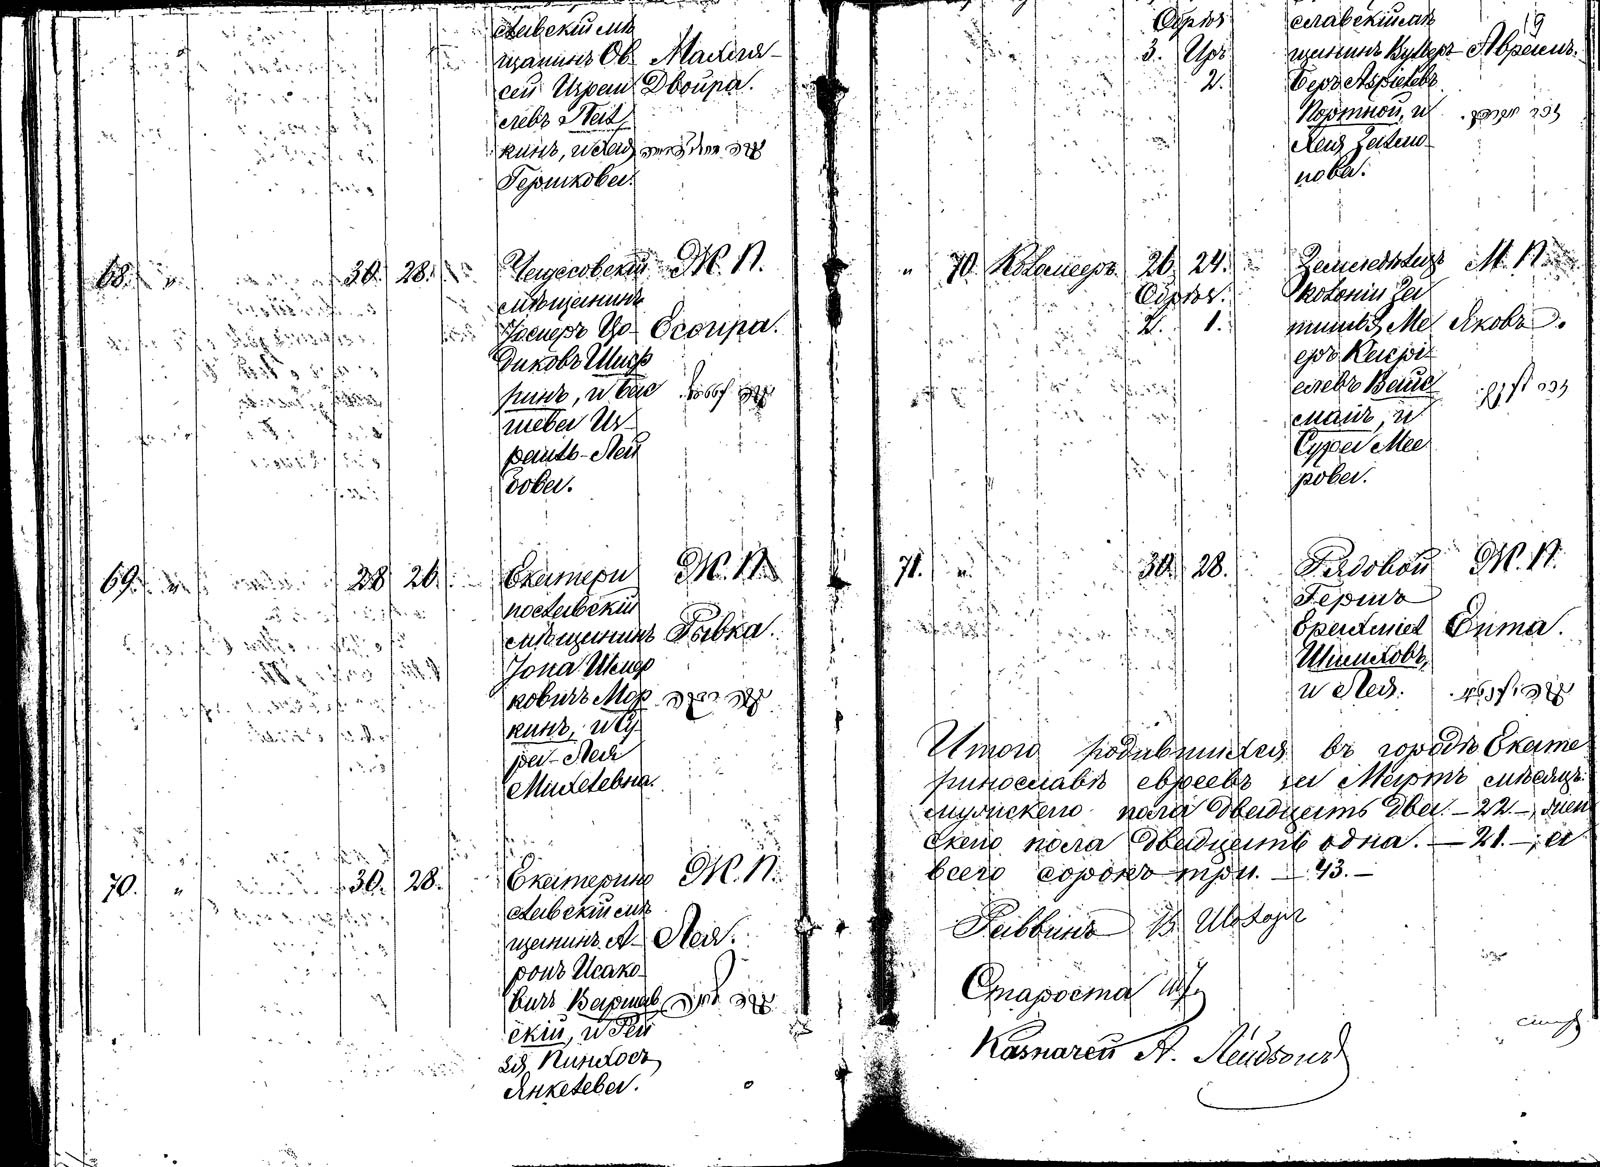 славскій мѣ
щанинъ Ов
сей Израи
левъ Пят
кинъ, и Хая
Гершкова.
Махля-
Двойра.
68. " 30. 28.
Чаусовскій
мѣщанинъ
Іосперъ Цо-
диковъ Шиф
ринъ, и Бас
шева Из-
раиль-Лей
бова.
Ж. П.
Есфира.
69. " 28 26.
Екатери
нославскій
мѣщанинъ
Іона Шмер
ковичъ Мор
кинъ, и Су
ра-Лея
Михелевна.
Ж. П.
Рывка.
70. " 30. 28.
Екатерино
славскій мѣ
щанинъ А-
ронъ Исако-
вичъ Варшав
скій, и Рей
зя Пинхосъ
Янкелева.
Ж. П.
Лея.
19
Обрѣз
3. Цр.
2.
славскій мѣ
щанинъ Кушеръ
Беръ Азріелевъ
Портной, и
Хая Залмо-
нова.
Аврамъ.
" 70. Коломееръ 26 24.
Обрѣз.
2. 1.
Земледѣлецъ
колоніи За
тишье, Ме
еръ Касрі
елевъ Вайс
манъ, и
Сура Мее
рова.
М. П.
Яковъ.
זכר יעקב
71. " 30. 28.
Рядовой
Гершъ
Ерахміел
Шмиловъ,
и Лея.
Ж. П.
Ента.
Итого родившихся въ городѣ Екате
ринославѣ евреевъ за Мартъ мѣсяцъ
мужскаго пола двадцать два. - 22 -, жен
скаго пола двадцать одна. - 21. -; а
всего сорокъ три. - 43. -
Раввинъ В Шохоръ
Староста
Казначей А. Лейбзонъ